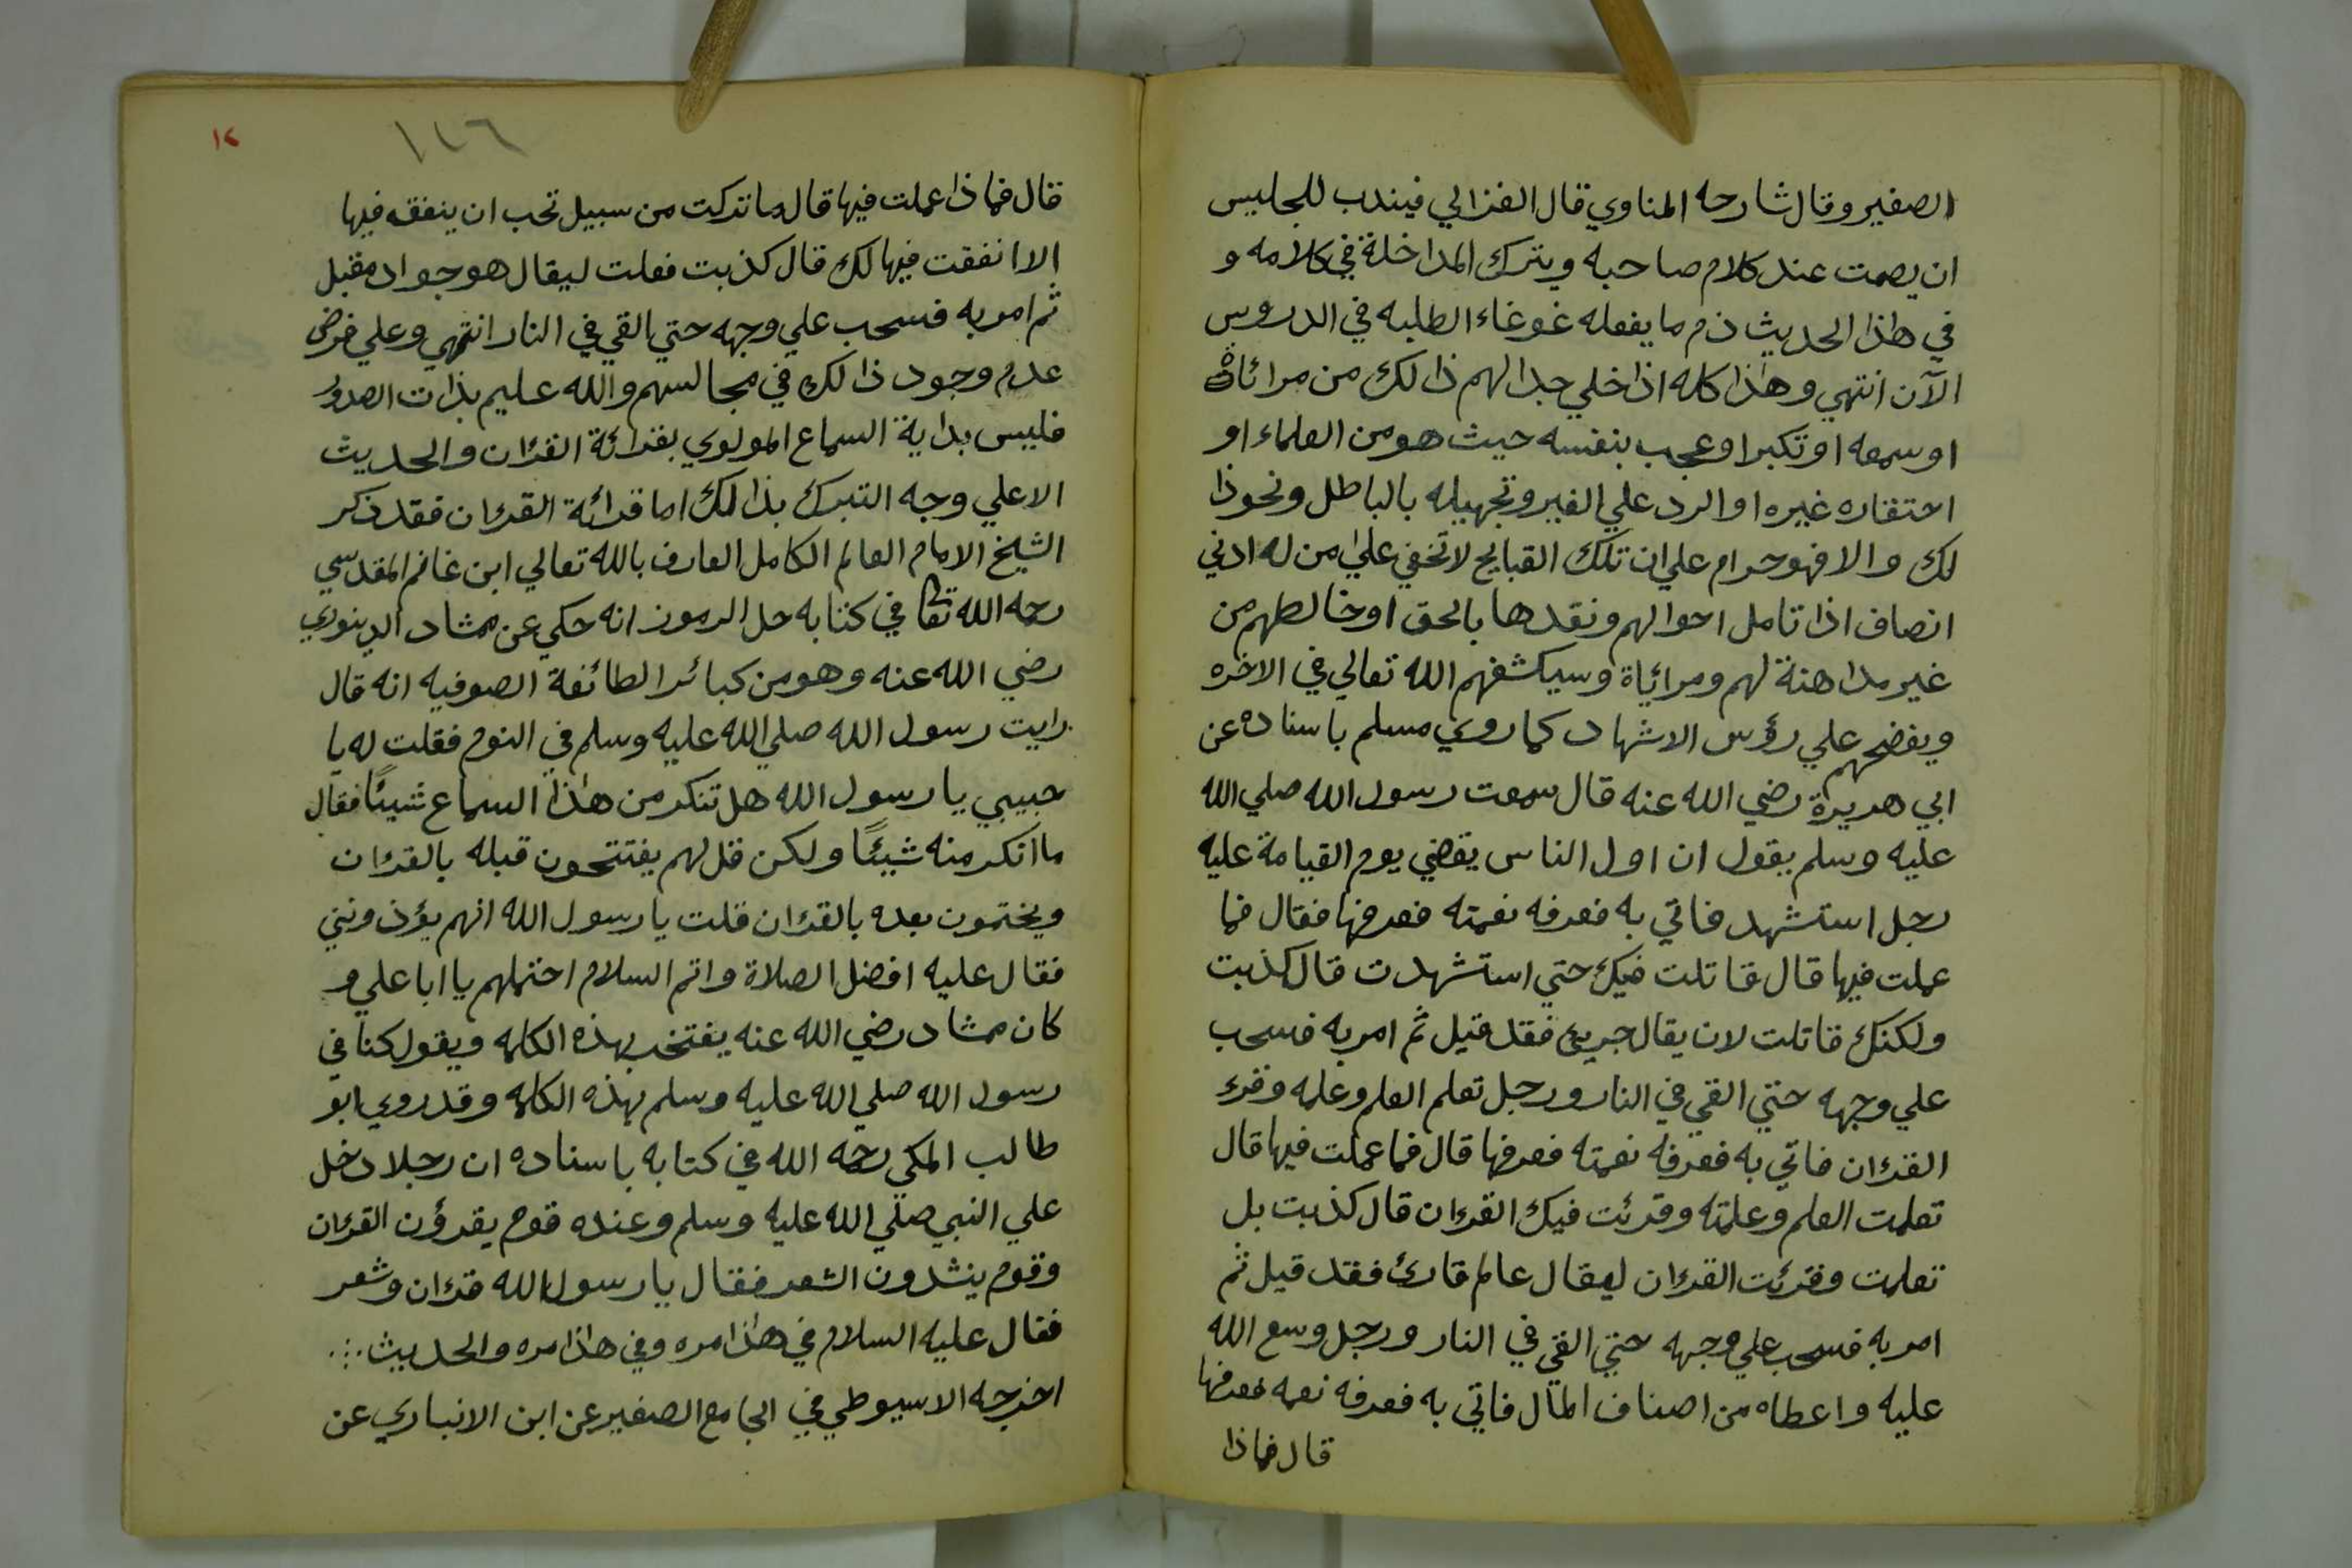 الصغير وقال شارحه المناوي قال الغزالي فيندب للجليس
ان يصمت عند كلام صاحبه ويترك المداخلة في كلامه و
في هاذا الحديث ذم ما يفعله غوغاء الطلبه في الدروس
الآن انتهي وهاذا كله اذا خلي جدالهم ذالك من مرائاة
او سمعه او تكبر او عجب بنفسه حيث هو من العلماء او
احتقاره غيره او الرد علي الغير وتجهيله بالباطل ونحو ذا
لك والا فهو حرام علي ان تلك القبايح لا تخفي علي من له ادني
انصاف اذا تامل احوالهم ونقدها بالحق او خالطهم من
غير مداهنة لهم ومرائاة وسيكشفهم الله تعالي في الاخره
ويفضحهم علي رؤس الاشهاد كما روي مسلم باسناده عن
ابي هريرة رضي الله عنه قال سمعت رسول الله صلي الله
عليه وسلم يقول ان اول الناس يقضي يوم القيامة عليه
رجل استشهد فاتي به فعرفه نعمته فعرفها فقال فما
عملت فيها قال قاتلت فيك حتي استشهدت قال كذبت
ولكنك قاتلت لان يقال جريئ فقد قيل ثم امر به فسحب
علي وجهه حتي القي في النار ورجل تعلم العلم وعلمه وقرء
القرءان فاتي به فعرفه نعمته فعرفها قال فما عملت فيها قال
تعلمت العلم وعلمته وقرئت فيك القرءان قال كذبت بل
تعلمت وقرئت القرءان ليقال عالم قارئ فقد قيل ثم
امر به فسحب علي وجهه حتي القي في النار ورجل وسع الله
عليه واعطاه من اصناف المال فاتي به فعرفه نعمه فعرفها
قال فماذا
١١٦
١٢
قال فماذا عملت فيها قال ما تركت من سبيل تحب ان ينفق فيها
الا انفقت فيها لك قال كذبت فعلت ليقال هو جواد فقيل
ثم امر به فسحب علي وجهه حتي القي في النار انتهي وعلي فرض
عدم وجود ذالك في مجالسهم والله عليم بذات الصدور
فليس بداية السماع المولوي بقرائة القرءان والحديث
الا علي وجه التبرك بذالك اما قرائة القرءان فقد ذكر
الشيخ الامام العالم الكامل العارف بالله تعالي ابن غانم المقدسي
رحمه الله تعا في كتابه حل الرموز انه حكي عن ممشاد الدينوري
رضي الله عنه وهو من كبائر الطائفة الصوفيه انه قال
رايت رسول الله صلي الله عليه وسلم في النوم فقلت له يا
حبيبي يا رسول الله هل تنكر من هاذا السماع شيئًا فقال
ما انكر منه شيئًا ولكن قل لهم يفتتحون قبله بالقرءان
ويختمون بعده بالقرءان قلت يا رسول الله انهم يؤذونني
فقال عليه افضل الصلاة واتم السلام احتملهم يا ابا علي و
كان ممشاد رضي الله عنه يفتخر بهذه الكلمه ويقول كناني
رسول الله صلي الله عليه وسلم بهذه الكلمه وقد روي ابو
طالب المكي رحمه الله في كتابه باسناده ان رجلا دخل
علي النبي صلي الله عليه وسلم وعنده قوم يقرؤن القرءان
وقوم ينشدون الشعر فقال يا رسول الله قرءان وشعر
فقال عليه السلام في هاذا مره وفي هاذا مره والحديث
اخرجه الاسيوطي في الجامع الصغير عن ابن الانباري عن